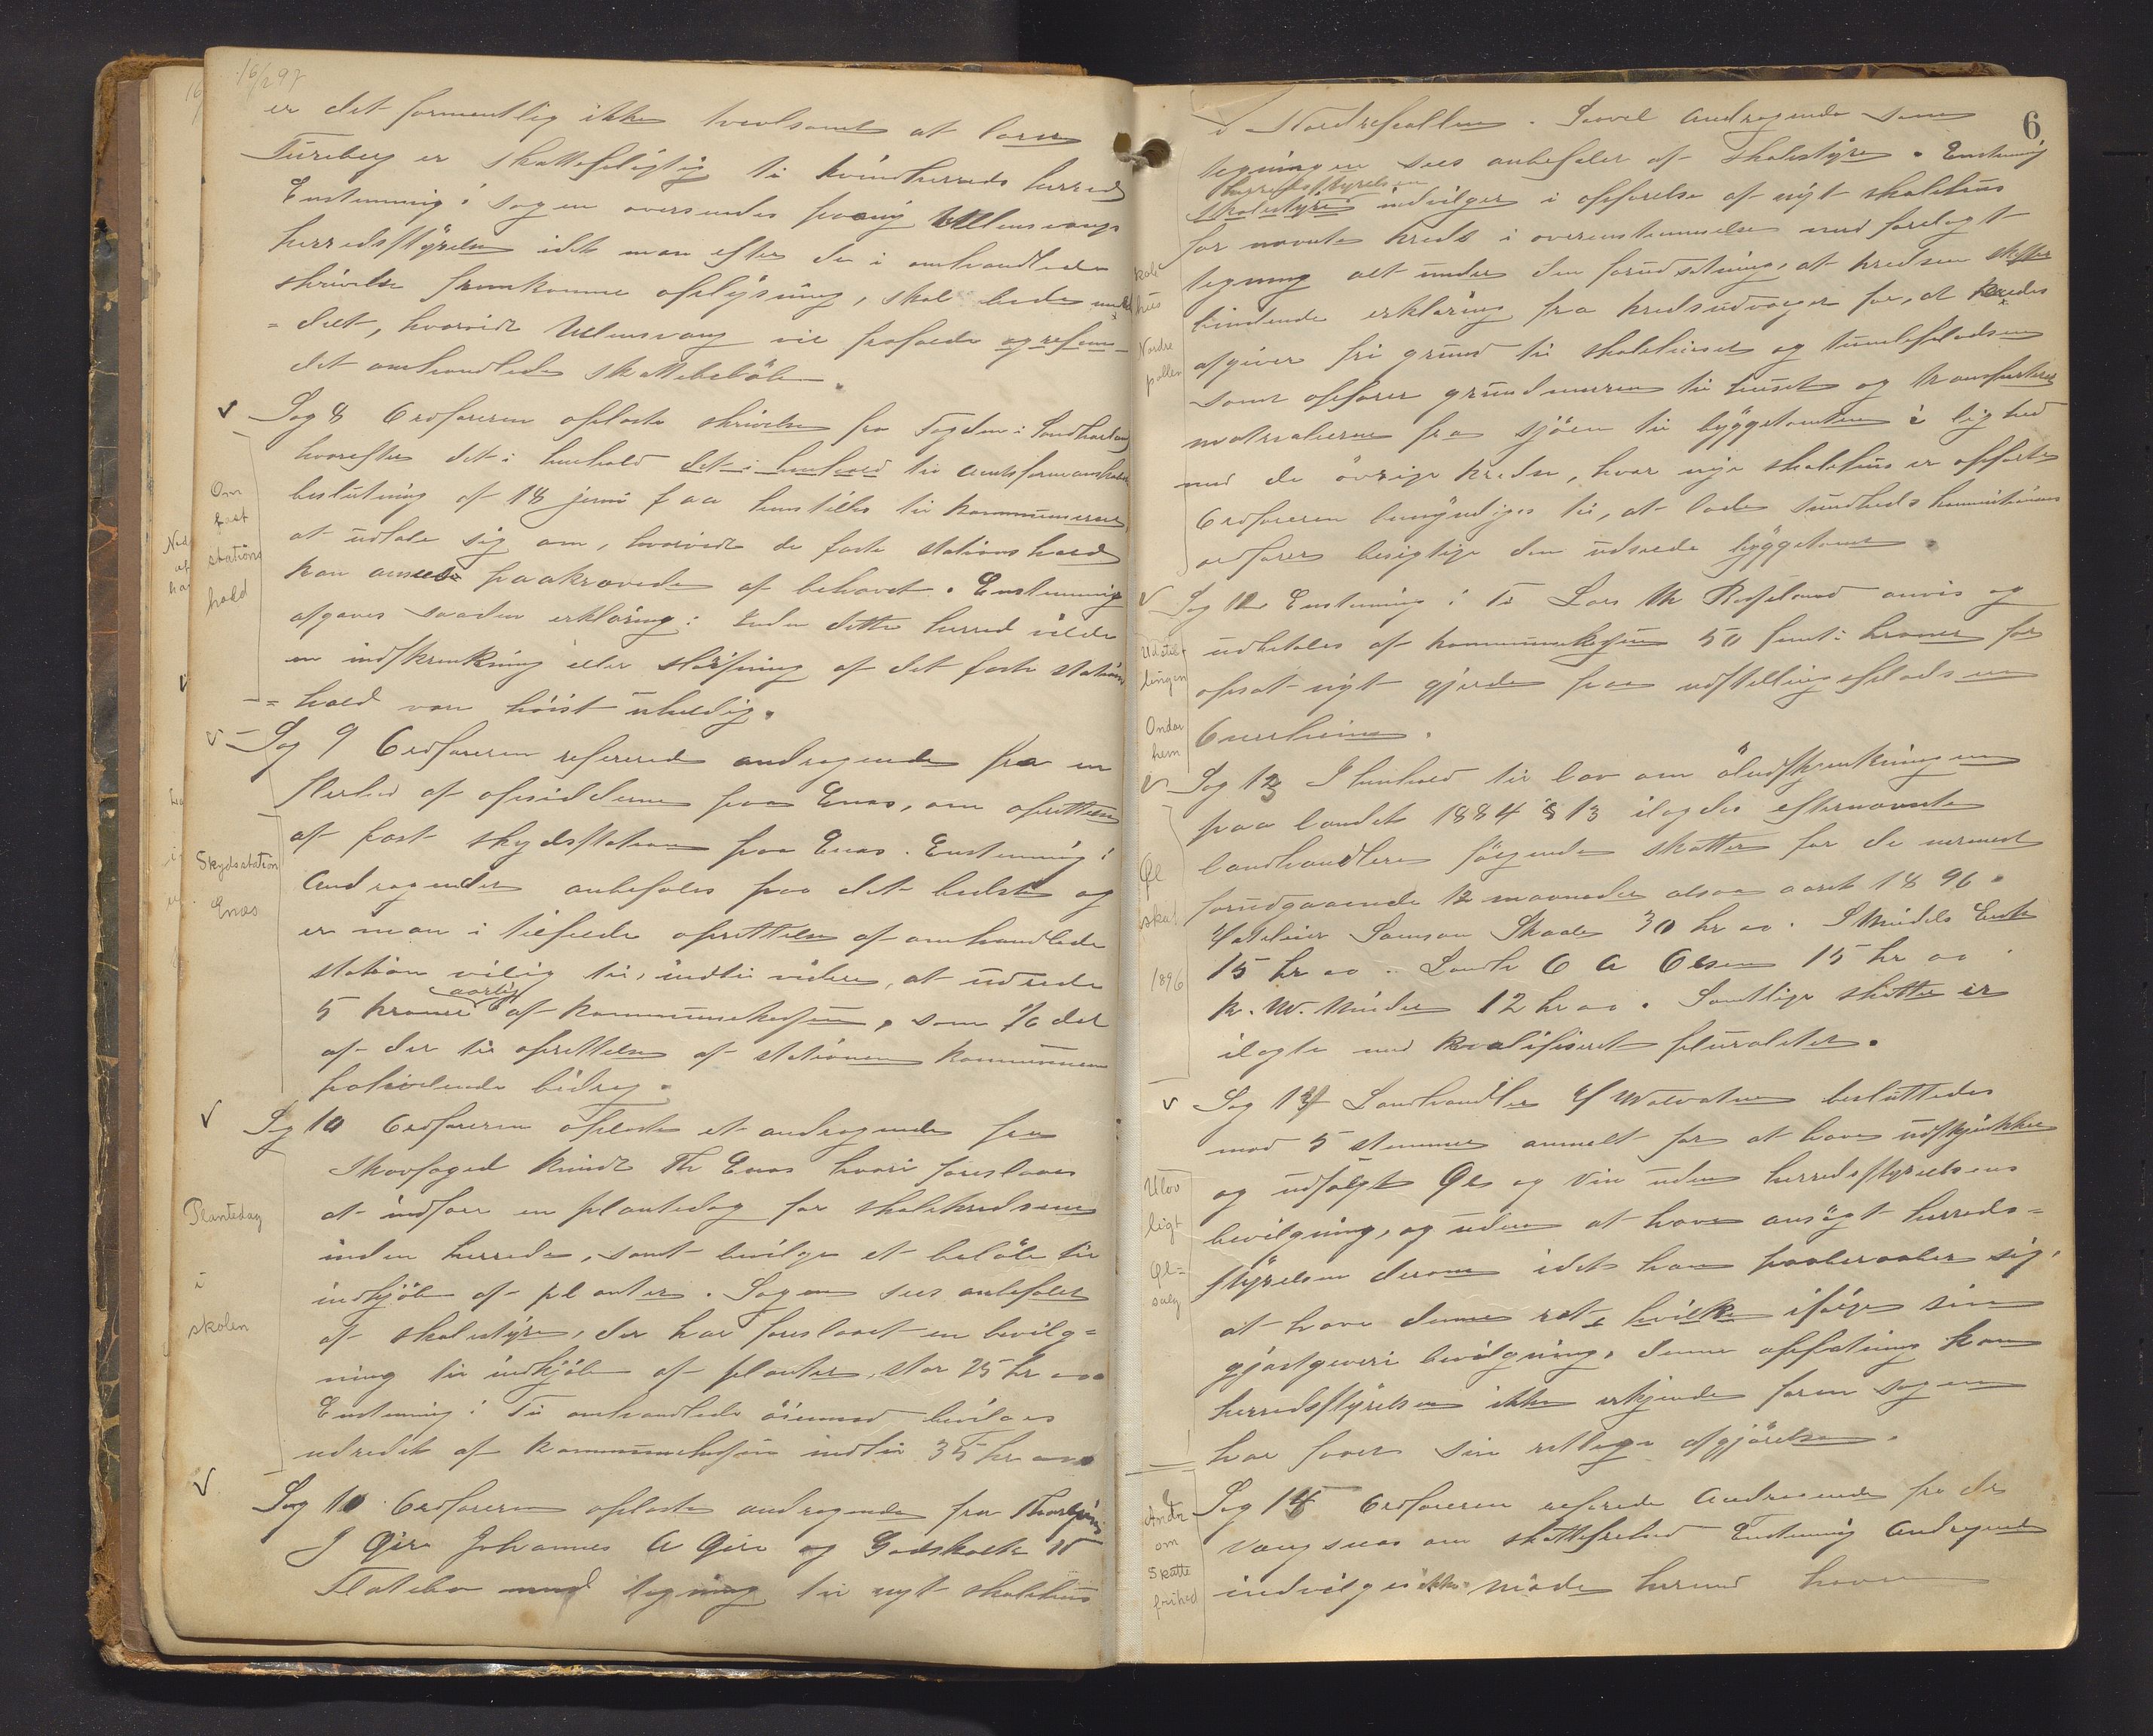 16/2 97
er det formentlig ikke tvivlsomt at
Tureberg er skattepligtig til Kvindherreds herred
Enstemmig: sagen oversendes paany Ullensvangs
herredsstyrelse idet man efter de i omhandlede
skrivelse fremkomne oplysning, skal bede
=delt, hvorvidt Ullensvang vil frafalde og refun-
det omhandlede skattebeløb.
Sag 8 Ordføreren oplæste skrivelse fra Fogden i Søndhordland
hvorefter det i henhold det i henhold til amtsformandskabets
beslutning af 18 juni f aa henstilles til kommunerne
at udtale sig om, hvorvidt de faste stationshold
kan ansees paakrævede af behovet. Enstemmig
afgaves saadan erklæring: Inden dette herred vilde
en indskrænkning eller sløifning af det faste stations
=hold være høist uheldig.
Om
fast
stations
hold
Sag 9 Ordføreren refererede andragende fra en
flerhed af opsidderne paa Enæs, om oprettelse
af fast skydsstation paa Enæs. Enstemmig:
Andragendet anbefales paa det bedste og
er man i tilfælde oprettelse af omhandlede
station villig til, indtil videre, at udrede
5 kroner aarlig af kommunekassen, som 1/6 del
af der til oprettelse af stationen kommunen
paahvilende bidrag.
Skydsstation
Enæs
Sag 10 Ordføreren oplæste et andragende fra
Skovfoged Knudt Th Enæs hvori foreslaaes
at indføre en plantedag for skolekredsene
inden herredet, samt bevilge et beløb til
indkjøb af planter. Sagen sees anbefalet
af skolestyret, der har foreslaaet en bevilg=
ning til indkjøb af planter, stor 25 kr
Enstemmig: Til omhandlede øiemed bevilges
udredet af kommunekassen indtil 35 kr
Plantedag
i
skolen
Sag 10 Ordføreren oplæste andragende fra
J Gjere Johannes A Gjere og Godskalk
Flatebø med tegning til nyt skolehus
6
i Nordrepollen. Saavel andragende som
tegningen sees anbefalet af skolestyret. Enstemmig
herredsstyrelsen
skolestyret indvilger i opførelse af nyt skolehus
for nævnte kreds i overenstemmelse med forelagt
tegning alt under den forudsetning, at kredsen skaffer
bindende erklæring fra kredsudvalget for, at kredsen
afgiver fri grund til skolehuset og tumlepladsen
samt opfører grundmuren til huset og transporterer
matrialierne fra sjøen til byggetomten i lighed
med de øvrige kredse, hvor nye skolehus er opførte
Ordføreren bemyndiges til, at lade sundhedskommisionens
ordfører besigtige den udseede byggetomt.
skole
hus
Nordre
pollen
Sag 12 Enstemmig: Til Lars M Røsland anvis og
udbetales af kommunekassen 50 femti kroner for
opsat nyt gjerde paa udstillingspladsen
Omvikheim.
Udstil-
lingen
Ondar
heim
Sag 13 I henhold til lov om øludskjænkningen
paa landet 1884 § 13 ilagdes efternævnte
landhandlere følgende skatter for de nærmest
forudgaaende 12 maaneder alsaa aaret 1896.
Hoteleier Samson Skaale 30 kr oo. S Mindels Enke
15 kr oo. Landh O A Olsen 15 kr oo
K. W. Minde 12 kr oo. Samtlige skatter er
ilagte med kvalifiseret pluralitet.
Øl
skat
1896
Sag 14 Landhandler H Malvatne besluttedes
mod 5 stemmer anmelt for at have udskjænket
og udsalgt Øl og Vin uden herredsstyrelsens
bevilgning, og uden at have ansøgt herreds=
styrelsen derom idet han paaberaaber sig,
at have denne ret, hvilke ifølge sin
gjæstgiveri bevilgning. denne opfatning kan
herredsstyrelsen ikke erkjende førend sagen
har faaet sin retslige afgjørelse.
Ulov
ligt
Øl=
salg
Sag 15 Ordføreren refererede Andragende fra
om skattefrihed Enstemmig Andragende
indvilges ikke. Møde hermed hævet
Andr
om
Skatte
frihed